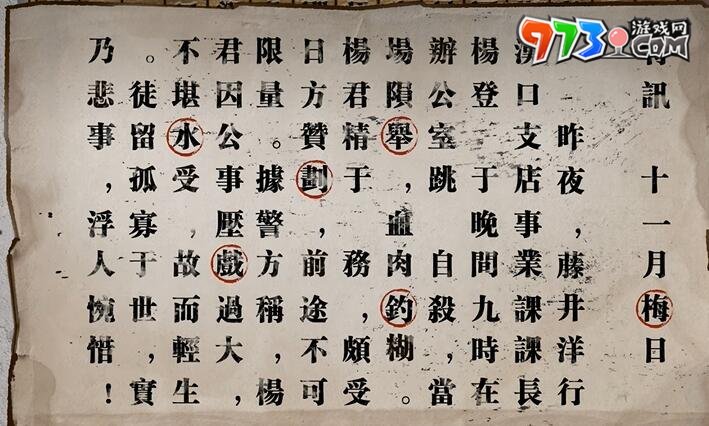 訊 十一月梅日
昨夜,藤井洋行
漢口支店事業課課長
楊登 于晚間九時在
辦公室 跳 自殺 當
場隕舉,血肉釣糊。
楊君精于 務,頗受
日方贊劃,前途,不可
限量。據警方稱,楊
君因公事壓戲過大,
不堪水受,故而輕生
。徒留孤寡于世,實
乃悲事,浮人惋惜!
973游戏网.COM